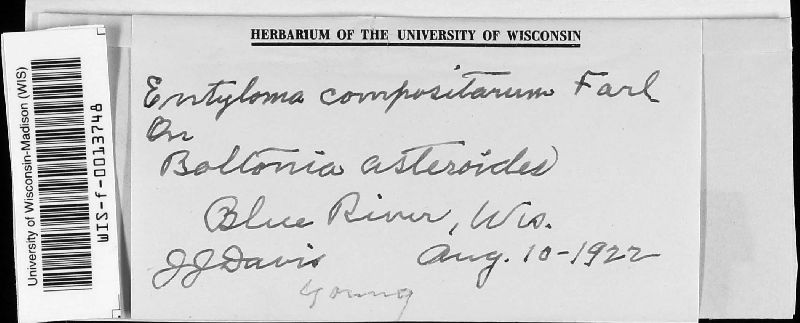 HERBARIUM OF THE UNIVERSITY OF WISCONSIN
Entyloma compositarum Farl.
On
Boltonia asteroides
Blue River, Wis.
JJ Davis Aug. 10-1922
young
University of Wisconsin-Madison (WIS)
WIS-f-0013748